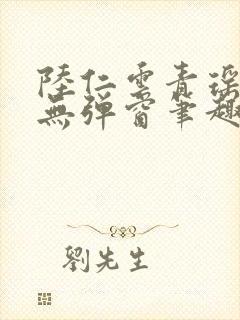 陸仁雲青瑤
無彈窗筆趣
劉先生